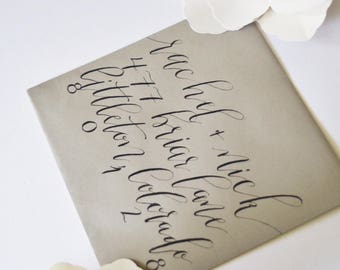 rachel + nick
477 briar lane
littleton, colorado
8 0 1 2 8